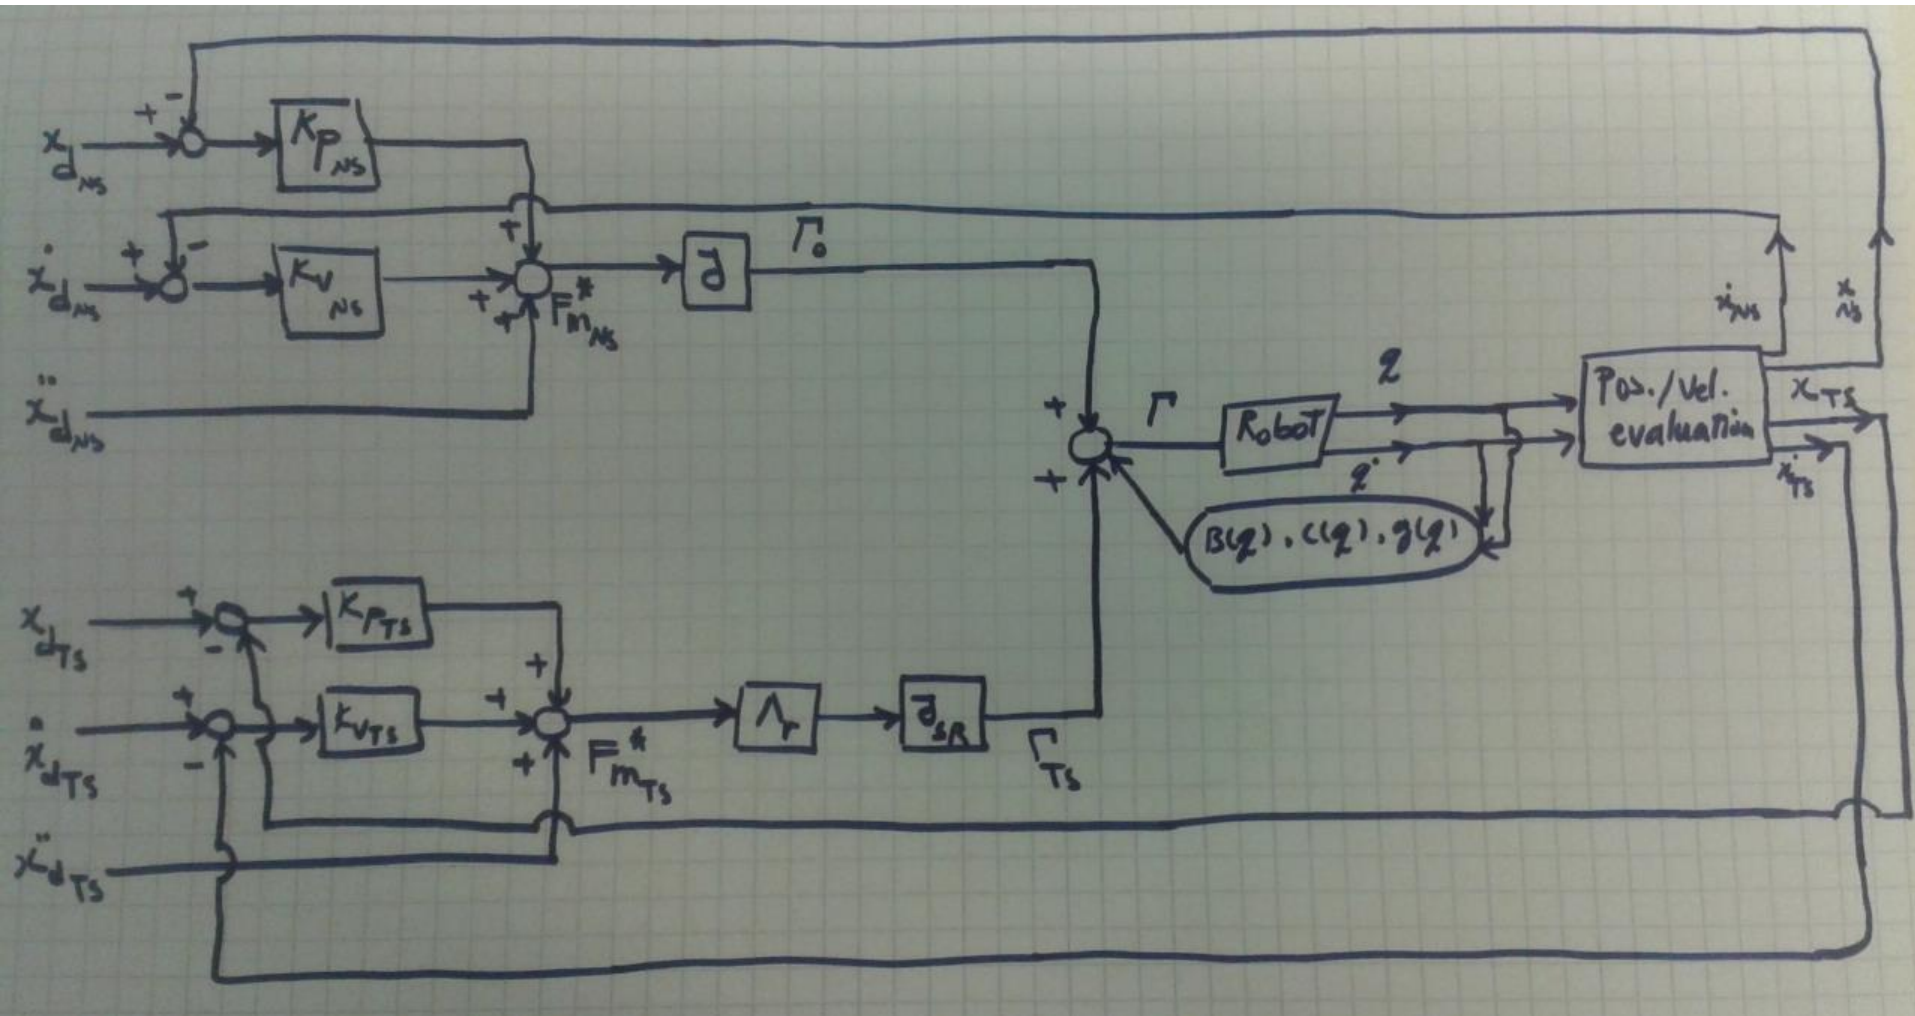 + -
x_dNS
Kp_NS
+ -
ẋ_dNS
Kv_NS
+
+
+
F*_mNS
J
Γ_0
ẍ_dNS
+
+
Γ
Robot
q
q̇
Pos./Vel.
evaluation
ẋ_NS
x_NS
x_TS
ẋ_TS
B(q), C(q), g(q)
+
-
x_dTS
Kp_TS
+
-
ẋ_dTS
Kv_TS
+
+
+
F*_mTS
Λ_r
J_SR
Γ_TS
ẍ_dTS